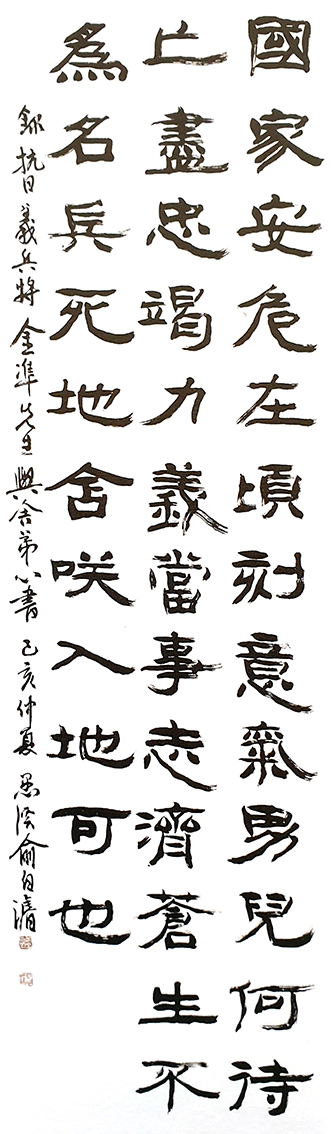 國家安危在頃刻意氣男兒何待
亡盡忠竭力義當事志濟蒼生不
爲名兵死地含咲入地可也
錄抗日義兵將金準先生與舍弟心書 己亥仲夏 愚溪俞白濬